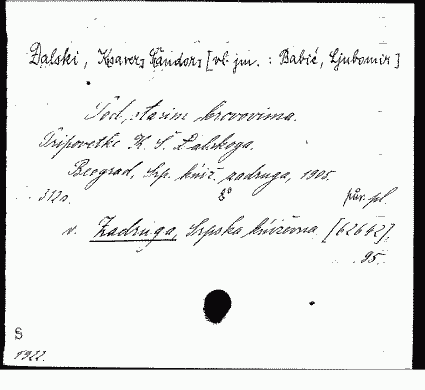 Đalski, Ksaver Šandor [vl. jm. : Babić, Ljubomir]
Pod starim krovovima.
Pripovetke K. Š. Đalskoga.
Beograd, Srp. kńiž. zadruga, 1905.
312s. 8° pův. pl.
v. Zadruga, Srpska kńiževna [62642],
95.
S
1922.